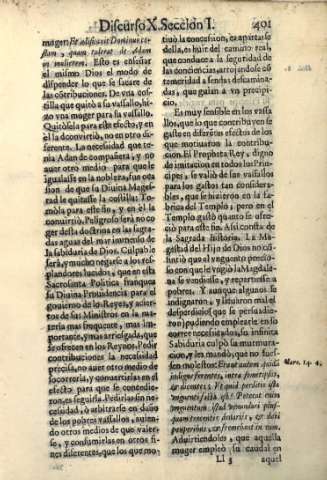 Discurso X. Seccion I. 401
muger: Et ædificavit Dominus co-
stam, quam tulerat de Adam
in mulierem. Esto es enseñar
el mismo Dios el modo de
disponder lo que se sacare de
las cõtribuciones. De vna cos-
tilla que quitò a su vassallo, hi-
zo vna muger para su vassallo.
Quitòsela para este efecto, y en
èl la convirtiò, no en otro di-
ferente. La necessidad que te-
nia Adan de compañera, y no
aver otro medio para que le
igualasse en la nobleza, fue oca
sion de que su Divina Mages-
tad le quitasse la costilla: To-
mòla para este fin, y en èl la
convirtiò. Peligroso serà no co
ger desta doctrina en las sagra-
das aguas del mar inmenso de
la sabiduria de Dios. Culpable
serà, y mucho negarse a los res-
plandores lucidos, que en esta
Sacrosanta Politica franquea
su Divina Providencia para el
govierno de los Reyes, y acier-
tos de sus Ministros en la ma-
teria mas frequente, mas im-
portante, y mas arriesgada, que
se ofrecen en los Reynos. Pedir
contribuciones la necessidad
precisa, no aver otro medio de
socorrerla, y convertirlas en el
efecto para que se concedie-
ron, es seguirla. Pedirlas sin ne-
cessidad, ò arbitrarse en daño
de los pobres vassallos, avien-
do otros medios de que valer-
se, y consumirlas en otros fi-
nes diferentes, que los que mo-
tivò la concession, es apartarse
della, es huir del camino real,
que conduce a la seguridad de
las conciencias, arrojandose cõ
temeridad a sendas descamina-
das, que guian a vn precipi-
cio.
Es muy sensible en los vassa-
llos, que lo que contribuyen se
gaste en distintos efectos de los
que motivaron la contribu-
cion. El Propheta Rey, digno
de imitacion en todos los Prin-
cipes, se valiò de sus vassallos
para los gastos tan considera-
bles, que se hizieron en la fa-
brica del Templo, pero en el
Templo gastò quanto se ofre-
ciò para este fin. Assi consta de
la Sagrada historia. La Ma-
gestad del Hijo de Dios no cõ-
sintiò que el vnguento precio-
so con que le vngiò la Magdale-
na se vendiesse, y repartiesse a
pobres. Y aunque algunos se
indignaron, y sintieron mal el
desperdicio (que se persuadie-
ron) pudiendo emplearse en so-
correr necessitados, su infinita
Sabiduria culpò su murmura-
cion, y les mandò, que no fues-
sen molestos: Erant autem quidã
indignè ferentes, intra semetipsos,
& dicentes: Vt quid perditio ista
vnguenti facta est? Poterat enim
vnguentum istud venundari plus-
quam trecentis denarijs, & dari
pauperibus, & fremebant in eam.
Advirtiendoles, que aquella
muger empleò su caudal en
Ll 3 aquel
Marc. 14. 4.